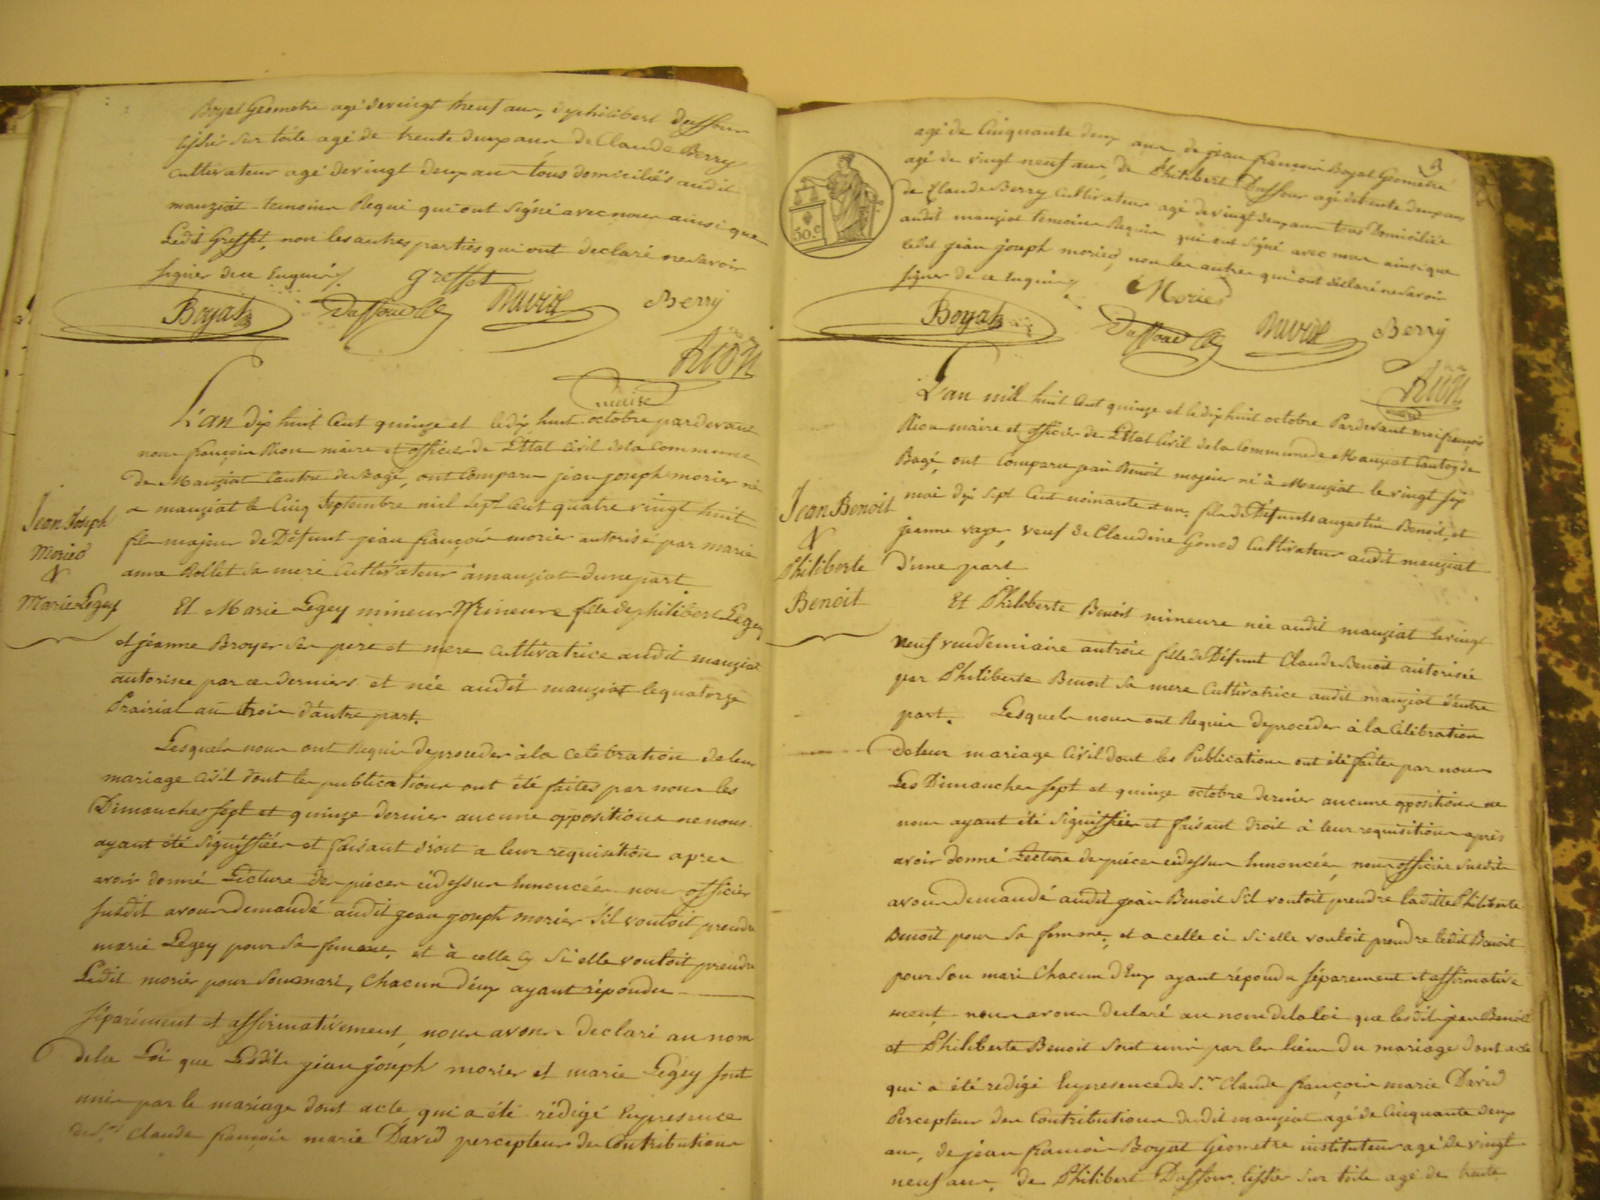 Boyat Géometre agé de vingt neuf ans, de philibert Duffour
tissier sur toile agé de trente deux ans de Claude Berry
cultivateur agé de vingt deux ans tous domiciliés audit
mauziat temoins Requi qui ont signé avec nous ainsi que
Ledit Greffet, non les autres parties qui ont declaré ne savoir
signer de ce Enquis
greffet
Boyat
David
Berry
Rion
maire
L'an dix huit Cent quinze et le dix huit octobre pardevant
nous françois Rion maire et officier de L'Etat Civil de la Commune
De Mauziat Canton de Bagé, ont Comparu jean joseph morier né
a mauziat le Cinq Septembre mil Sept Cent quatre vingt huit
fils majeur de Défunt jean françois morier autorisé par marie
anne Rollet sa mere Cultivateur à mauziat d'une part
Jean Joseph
Morier
&
Marie Legey
Et Marie Legey mineur Mineure fille de philibert Legey
et jeanne Broyer ses pere et mere cultivatrice audit mauziat
autorisée par ce derniers et née audit mauziat le quatorze
Prairial an trois d'autre part.
Lesquels nous ont Requis de proceder à la Celebration de leur
mariage Civil dont les publications ont été faites par nous les
Dimanches sept et quinze dernier aucune opposition ne nous
ayant été signiffiée et faisant droit a leur requisition apres
avoir donné Lecture des pieces cidessus Ennoncées nous officier
susdit avons demandé audit jean joseph morier s'il vouloit prendre
marie Legey pour sa femme, et à celle cy si elle vouloit prendre
Ledit morier pour son mari, Chacun d'eux ayant répondu
séparément et affirmativement, nous avons declaré au nom
de la Loi que Lesdits jean joseph morier et marie Legey sont
unis par le mariage dont acte qui a été rédigé En presence
de Sr. Claude françois marie David percepteur des Contributions
3
agé de Cinquante deux ans, de jean françois Boyat Géometre
agé de vingt neuf ans, de Philibert Duffour agé de trente deux ans
de Claude Berry Cultivateur agé de vingt deux ans tous Domiciliés
audit mauziat temoins Requis qui ont signé avec nous ainsi que
ledit jean joseph morier, non les autres qui ont déclaré ne savoir
signer de ce Enquis
50.c
Morier
Boyat
David
Berry
Rion
maire
L'an mil huit Cent quinze et le dix huit octobre Pardevant moi françois
Rion maire et officier de L'Etat Civil de la Commune de Mauziat Canton de
Bagé, ont Comparu jean Benoit majeur né à Mauziat le vingt six
mai dix sept Cent nonante et un, fils de Défunts augustin Benoit, et
jeanne vayer, veuf de Claudine Gonod Cultivateur audit mauziat
D'une part
Jean Benoit
&
Philiberte
Benoit
Et Philiberte Benoit mineure née audit mauziat le vingt
neuf vendémiaire an trois fille de Défunt Claude Benoit autorisée
par Philiberte Benoit sa mere Cultivatrice audit mauziat d'autre
part. Lesquels nous ont Requis de procéder à la Célébration
de leur mariage Civil dont les Publications ont été faites par nous
Les Dimanches sept et quinze octobre dernier aucune opposition ne
nous ayant été signiffiée et faisant droit à leur requisition après
avoir donné Lecture des pieces cidessus Ennoncées, nous officier susdit
avons demandé audit jean Benoit s'il vouloit prendre laditte Philiberte
Benoit pour sa femme, et a celle ci si elle vouloit prendre ledit Benoit
pour son mari Chacun d'Eux ayant répondu séparement et affirmative
ment, nous avons declaré au nom de la loi que lesdits jean Benoit
et Philiberte Benoit sont unis par les liens du mariage dont acte
qui a été rédigé En presence de Sr. Claude françois marie David
Percepteur des Contributions dudit mauziat agé de Cinquante deux
ans, de jean francois Boyat Géometre instituteur agé de vingt
neuf ans, de Philibert Duffour tissier sur toile agé de trente